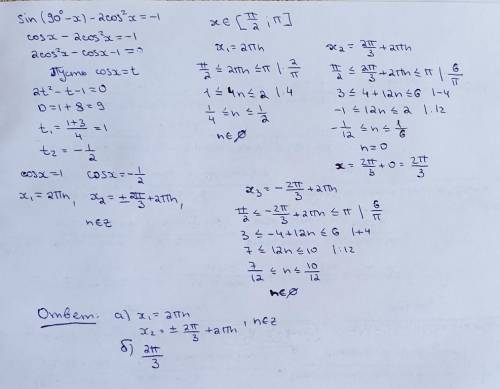 sin(90°-x)-2cos²x=-1
cosx-2cos²x=-1
2cos²x-cosx-1=0
Пусть cosx=t
2t²-t-1=0
D=1+8=9
t₁=1+3/4=1
t₂=-1/2
cosx=1 cosx=-1/2
x₁=2πn, x₂=±2π/3+2πn,
n∈z
x∈[π/2;π]
x₁=2πn
π/2≤2πn≤π | 2/π
1≤4n≤2 |:4
1/4≤n≤1/2
n∈∅
x₂=2π/3+2πn
π/2≤2π/3+2πn≤π | 6/π
3≤4+12n≤6 |-4
-1≤12n≤2 |:12
-1/12≤n≤1/6
n=0
x=2π/3+0=2π/3
x₃=-2π/3+2πn
π/2≤-2π/3+2πn≤π | 6/π
3≤-4+12n≤6 |+4
7≤12n≤10 |:12
7/12≤n≤10/12
n∈∅
Ответ: а) x₁=2πn
x₂=±2π/3+2πn, n∈z
б) 2π/3